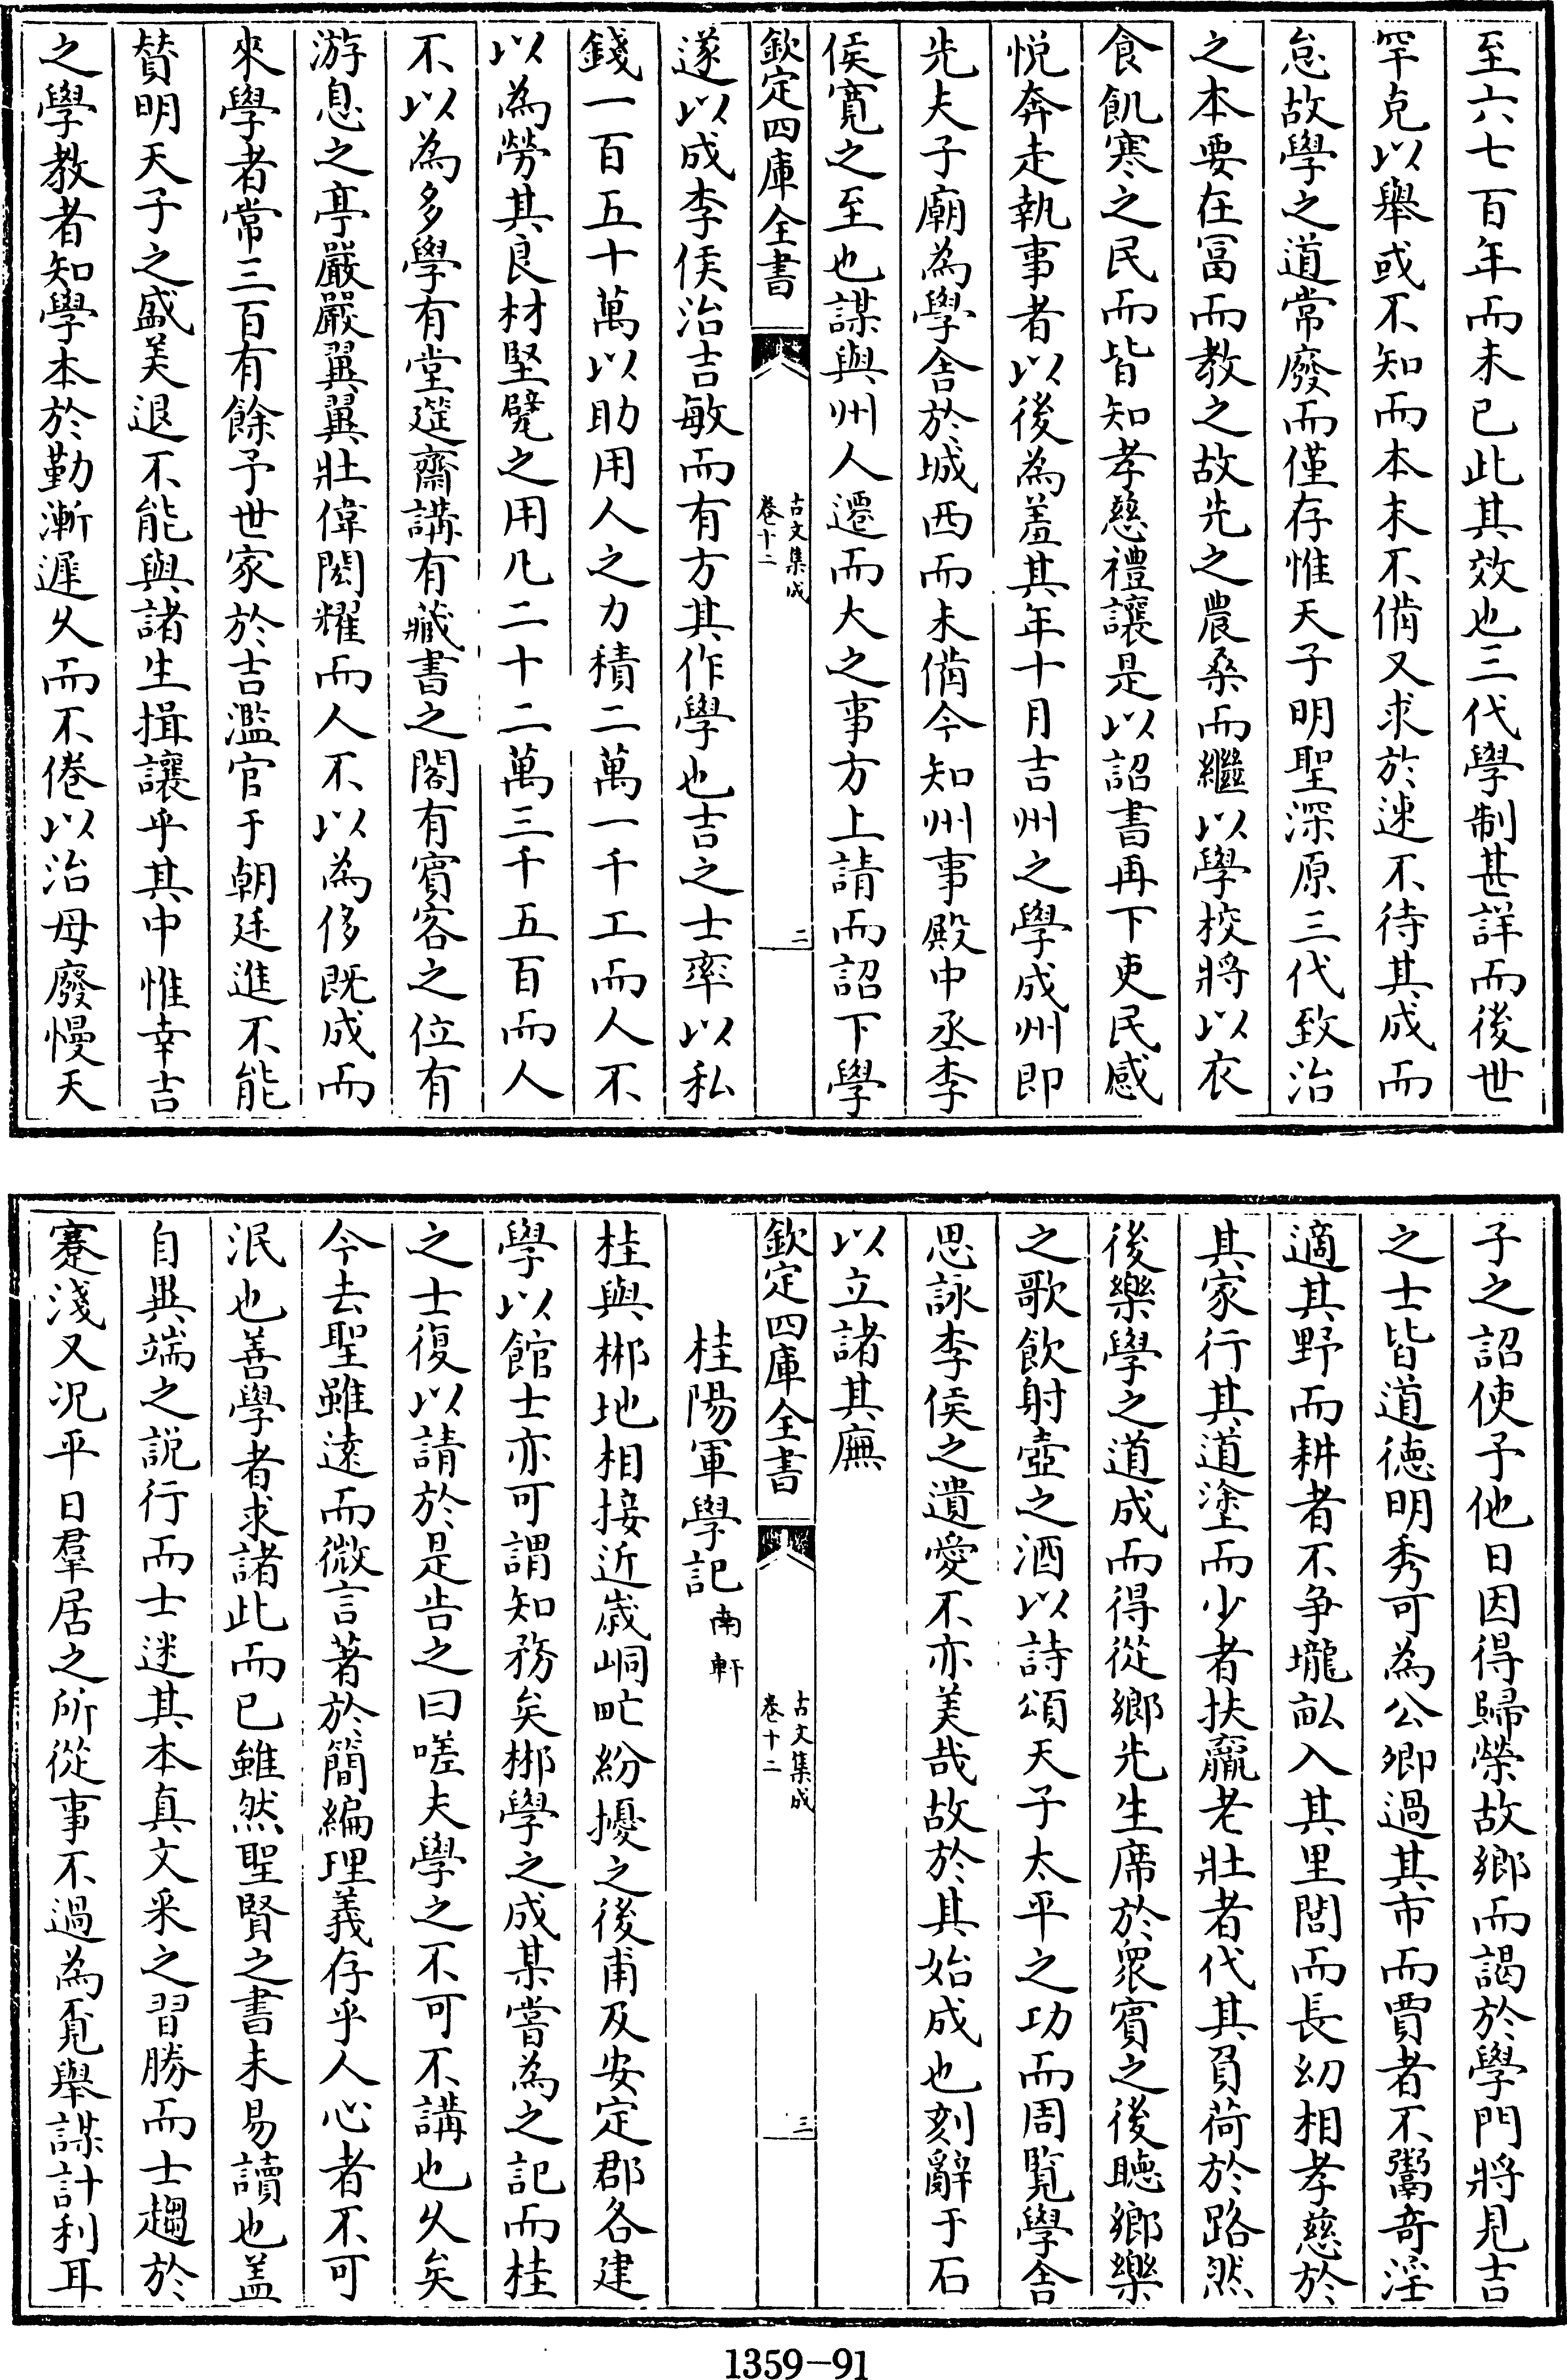 至六七百年而未已此其效也三代學制甚詳而後世
罕克以舉或不知而本末不備又求於速不待其成而
怠故學之道常廢而僅存惟天子明聖深原三代致治
之本要在冨而教之故先之農桑而繼以學校將以衣
食飢寒之民而皆知孝慈禮讓是以詔書再下吏民感
悦奔走執事者以後為羞其年十月吉州之學成州即
先夫子廟為學舎於城西而未備今知州事殿中丞李
侯寛之至也謀與州人遷而大之事方上請而詔下學
欽定四庫全書
古文集成
卷十二
二
遂以成李侯治吉敏而有方其作學也吉之士率以私
錢一百五十萬以助用人之力積二萬一千工而人不
以為勞其良材堅甓之用凡二十二萬三千五百而人
不以為多學有堂筵齋講有藏書之閣有賔客之位有
游息之亭嚴嚴翼翼壯偉閎耀而人不以為侈既成而
來學者常三百有餘予世家於吉濫官于朝廷進不能
賛明天子之盛美退不能與諸生揖讓乎其中惟幸吉
之學教者知學本於勤漸遲乆而不倦以治毋廢慢天
子之詔使予他日因得歸榮故鄉而謁於學門將見吉
之士皆道徳明秀可為公卿過其市而賈者不鬻竒淫
適其野而耕者不争壠畝入其里閭而長幼相孝慈於
其家行其道塗而少者扶羸老壯者代其負荷於路然
後樂學之道成而得從鄉先生席於衆賔之後聴鄉樂
之歌飲射壺之酒以詩頌天子太平之功而周覧學舎
思詠李侯之遺愛不亦美哉故於其始成也刻辭于石
以立諸其廡
欽定四庫全書
古文集成
卷十二
三
桂陽軍學記 南軒
桂與郴地相接近嵗峒甿紛擾之後甫及安定郡各建
學以館士亦可謂知務矣郴學之成某嘗為之記而桂
之士復以請於是告之曰嗟夫學之不可不講也乆矣
今去聖雖逺而微言著於簡編理義存乎人心者不可
泯也善學者求諸此而已雖然聖賢之書未易讀也盖
自異端之說行而士迷其本真文采之習勝而士趨於
蹇淺又况平日羣居之所從事不過為覔舉謀計利耳
1359-91